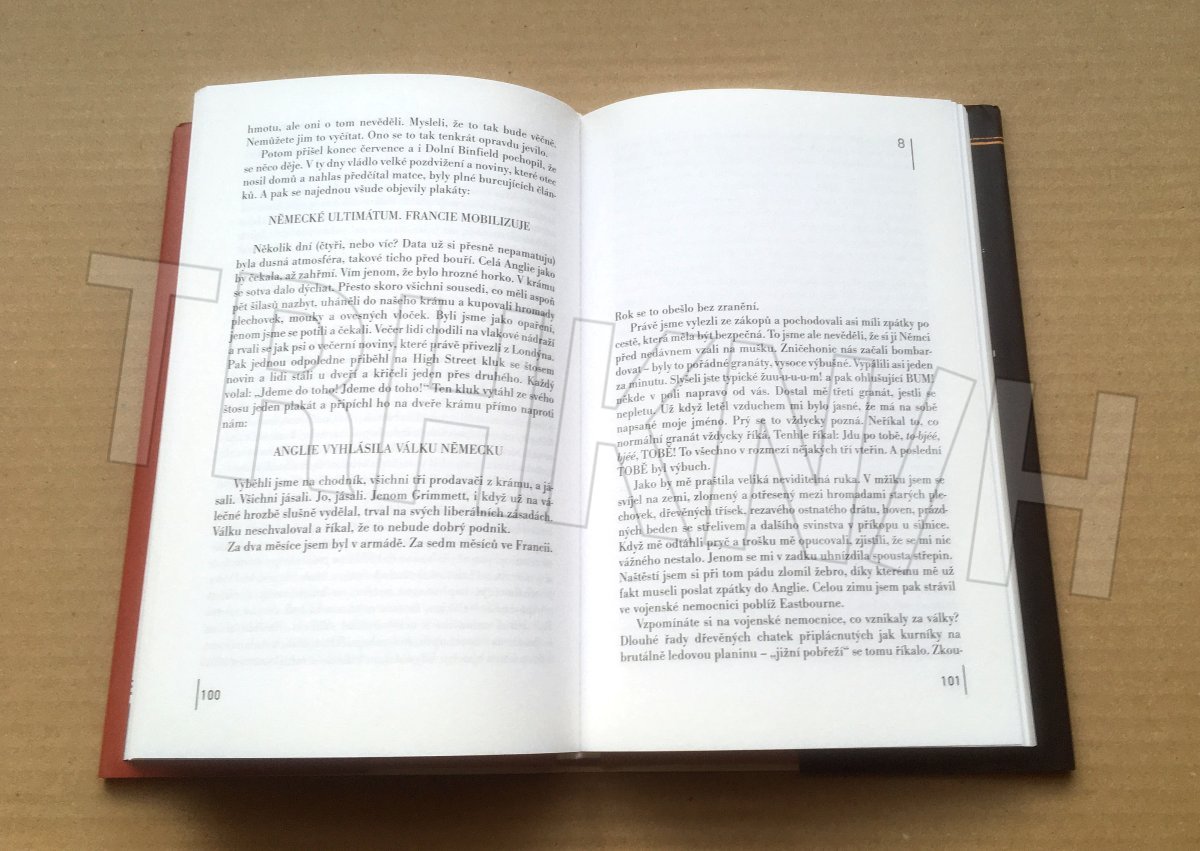 hmotu, ale oni o tom nevěděli. Mysleli, že to tak bude věčně.
Nemůžete jim to vyčítat. Ono se to tak tenkrát opravdu jevilo.
Potom přišel konec července a i Dolní Binfield pochopil, že
se něco děje. V ty dny vládlo velké pozdvižení a noviny, které otec
nosil domů a nahlas předčítal matce, byly plné burcujících člán-
ků. A pak se najednou všude objevily plakáty:
NĚMECKÉ ULTIMÁTUM. FRANCIE MOBILIZUJE
Několik dní (čtyři, nebo víc? Data už si přesně nepamatuju)
byla dusná atmosféra, takové ticho před bouří. Celá Anglie jako
by čekala, až zahřmí. Vím jenom, že bylo hrozné horko. V krámu
se sotva dalo dýchat. Přesto skoro všichni sousedi, co měli aspoň
pět šilasů nazbyt, uháněli do našeho krámu a kupovali hromady
plechovek, mouky a ovesných vloček. Byli jsme jako opaření,
jenom jsme se potili a čekali. Večer lidi chodili na vlakové nádraží
a rvali se jak psi o večerní noviny, které právě přivezli z Londýna.
Pak jednou odpoledne přiběhl na High Street kluk se štosem
novin a lidi stáli u dveří a křičeli jeden přes druhého. Každý
volal: „Jdeme do toho! Jdeme do toho!“ Ten kluk vytáhl ze svého
štosu jeden plakát a připíchl ho na dveře krámu přímo naproti
nám:
ANGLIE VYHLÁSILA VÁLKU NĚMECKU
Vyběhli jsme na chodník, všichni tři prodavači z krámu, a já-
sali. Všichni jásali. Jo, jásali. Jenom Grimmett, i když už na vá-
lečné hrozbě slušně vydělal, trval na svých liberálních zásadách.
Válku neschvaloval a říkal, že to nebude dobrý podnik.
Za dva měsíce jsem byl v armádě. Za sedm měsíců ve Francii.
100
8
Rok se to obešlo bez zranění.
Právě jsme vylezli ze zákopů a pochodovali asi míli zpátky po
cestě, která měla být bezpečná. To jsme ale nevěděli, že si ji Němci
před nedávnem vzali na mušku. Zničehonic nás začali bombar-
dovat – byly to pořádné granáty, vysoce výbušné. Vypálili asi jeden
za minutu. Slyšeli jste typické žuu-u-u-m! a pak ohlušující BUM!
někde v poli napravo od vás. Dostal mě třetí granát, jestli se
nepletu. Už když letěl vzduchem mi bylo jasné, že má na sobě
napsané moje jméno. Prý se to vždycky pozná. Neříkal to, co
normální granát vždycky říká. Tenhle říkal: Jdu po tobě, to-bjéé,
bjéé, TOBĚ! To všechno v rozmezí nějakých tří vteřin. A poslední
TOBĚ byl výbuch.
Jako by mě praštila veliká neviditelná ruka. V mžiku jsem se
svíjel na zemi, zlomený a otřesený mezi hromadami starých ple-
chovek, dřevěných třísek, rezavého ostnatého drátu, hoven, prázd-
ných beden se střelivem a dalšího svinstva v příkopu u silnice.
Když mě odtáhli pryč a trošku mě opucovali, zjistili, že se mi nic
vážného nestalo. Jenom se mi v zadku uhnízdila spousta střepin.
Naštěstí jsem si při tom pádu zlomil žebro, díky kterému mě už
fakt museli poslat zpátky do Anglie. Celou zimu jsem pak strávil
ve vojenské nemocnici poblíž Eastbourne.
Vzpomínáte si na vojenské nemocnice, co vznikaly za války?
Dlouhé řady dřevěných chatek připlácnutých jak kurníky na
brutálně ledovou planinu – „jižní pobřeží“ se tomu říkalo. Zkou-
101
TRHKNIH